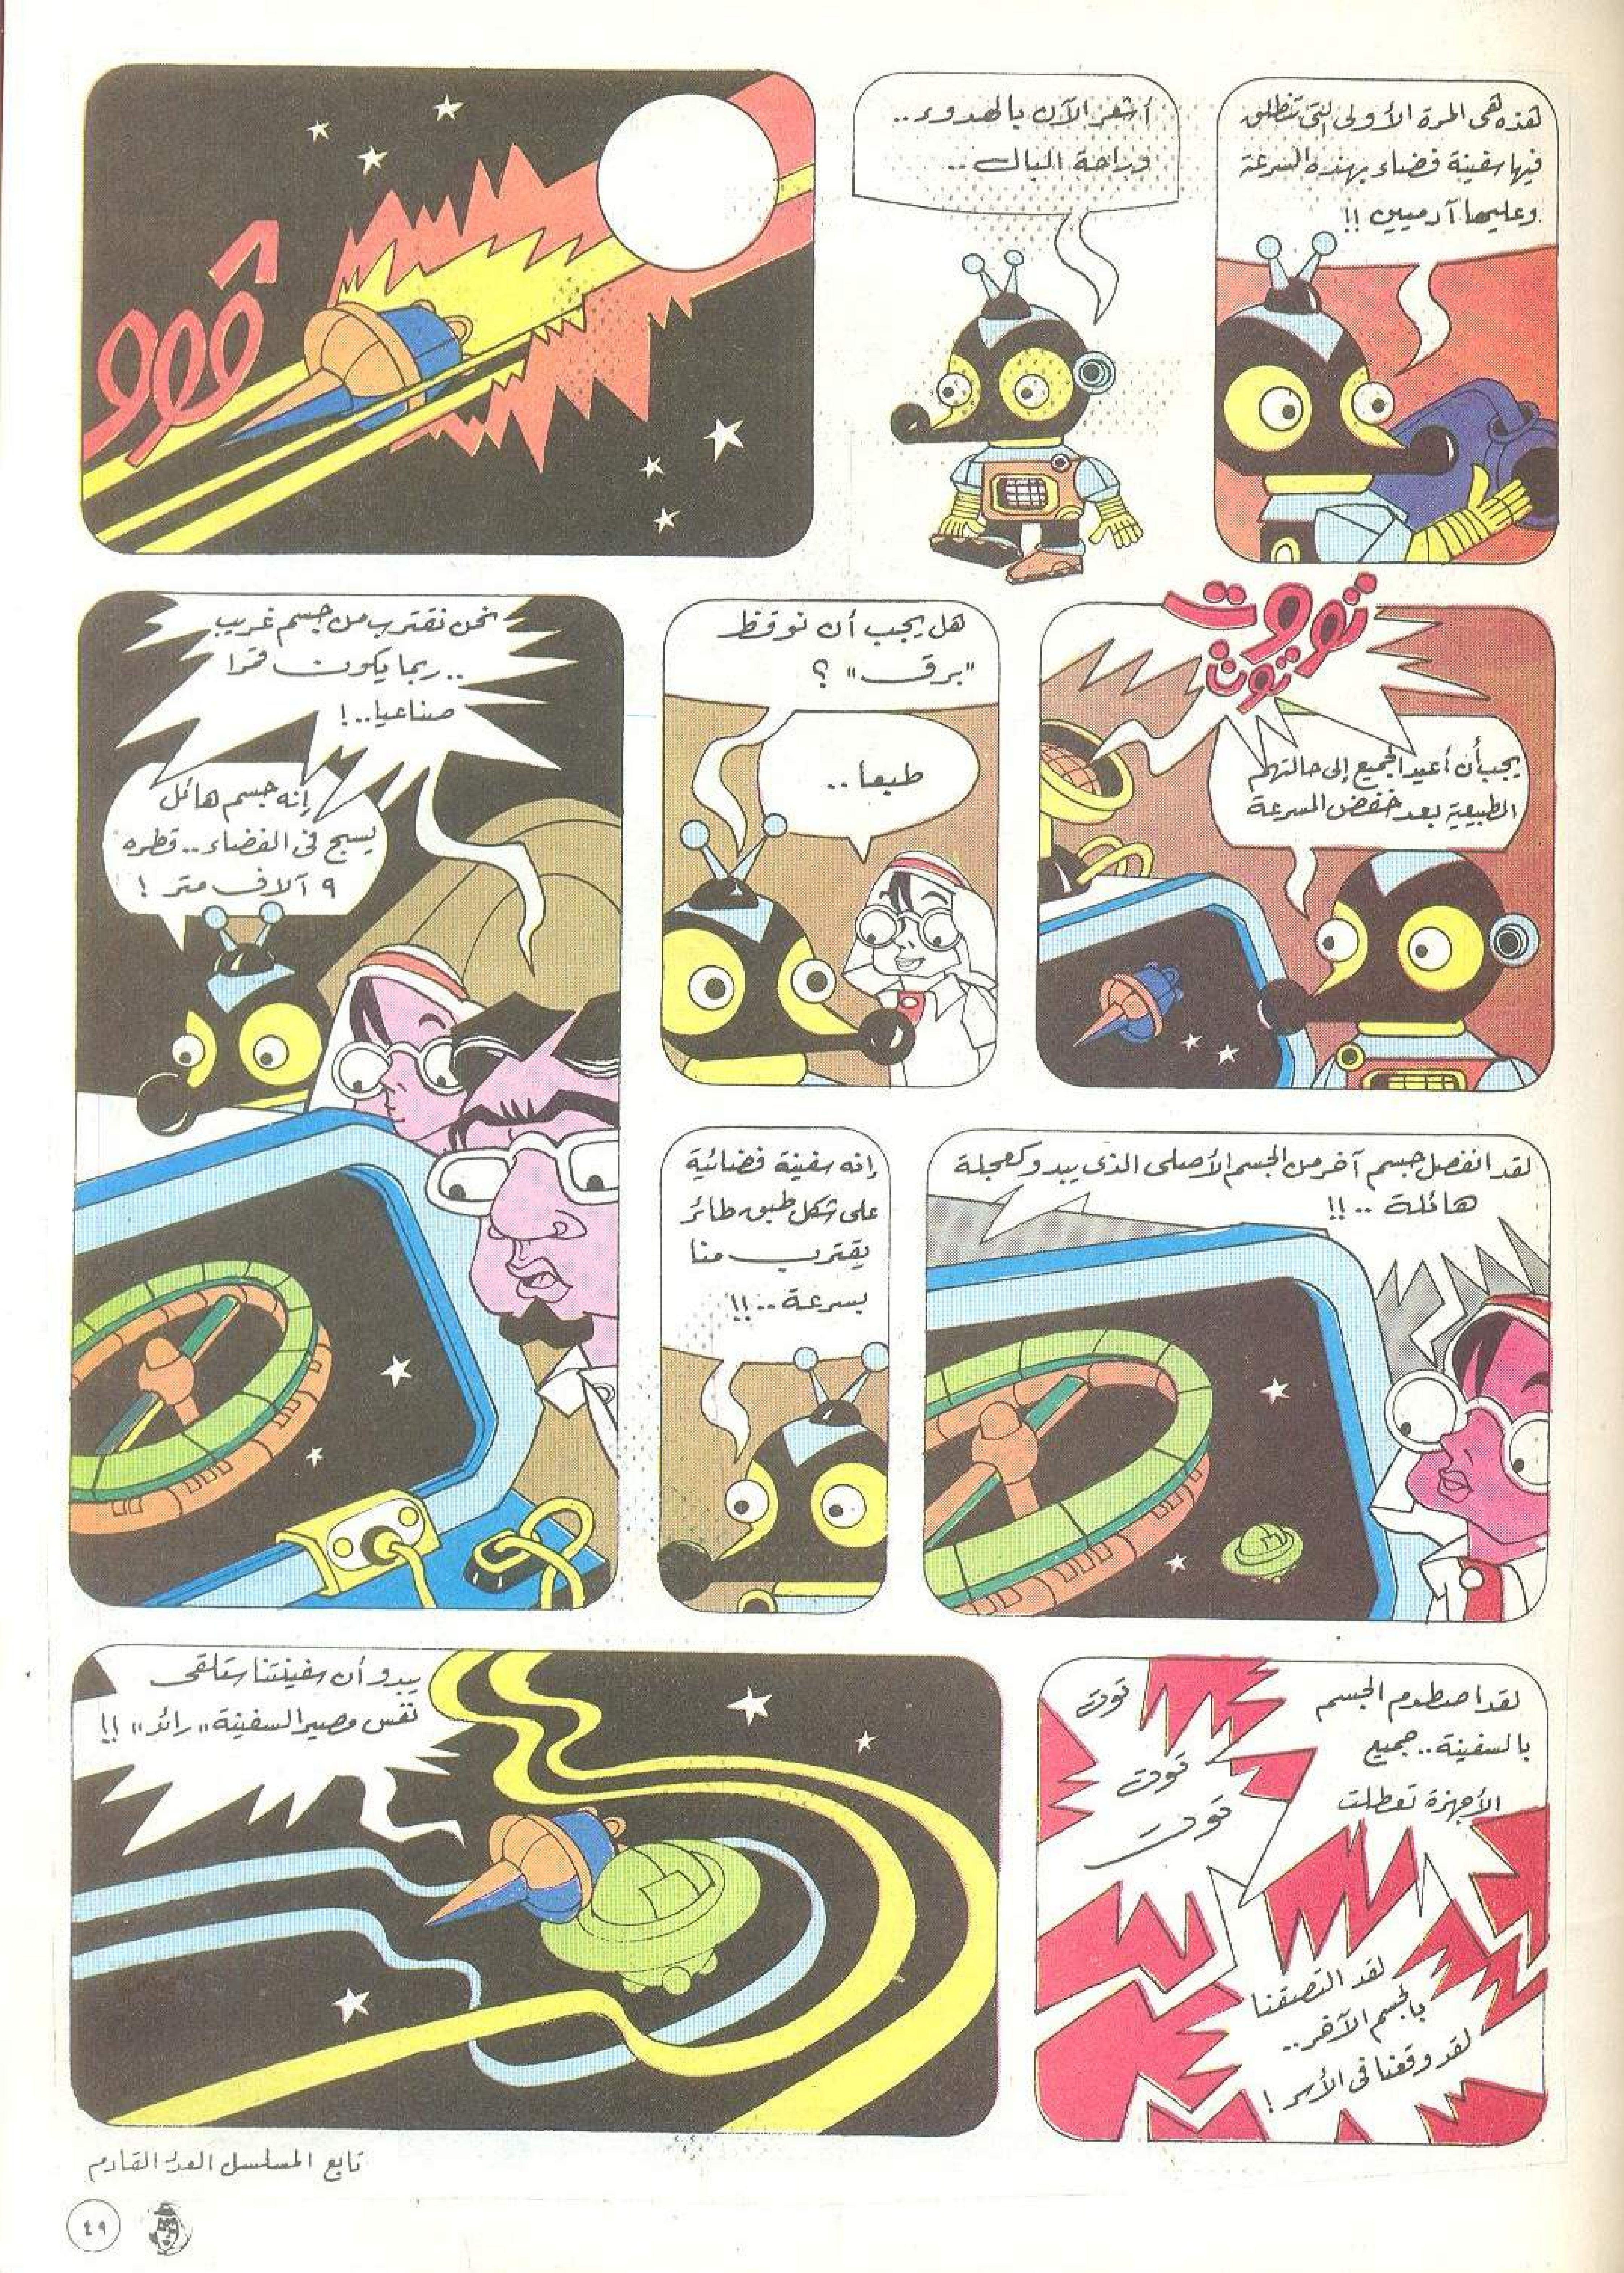 هذه هى المرة الأولى التى تنطلق
فيها سفينة فضاء بهذه السرعة
وعليها آدميين !!
أشعر الآن بالهدوء..
وراحة البال..
ڤووو
تووت
توت
يجب أن أعيد الجميع إلى حالتهم
الطبيعية بعد خفض السرعة
هل يجب أن نوقظ
"برق" ؟
طبعا..
نحن نقترب من جسم غريب
.. ربما يكون قمرا
صناعيا..!
إنه جسم هائل
يسبح فى الفضاء.. قطره
٩ آلاف متر !
لقد انفصل جسم آخر من الجسم الأصلى الذى يبدو كعجلة
هائلة ..!!
إنه سفينة فضائية
على شكل طبق طائر
يقترب منا
بسرعة ..!!
لقد اصطدم الجسم
بالسفينة.. جميع
الأجهزة تعطلت
توت
توت
توت
لقد التصقنا
بالجسم الآخر..
لقد وقعنا فى الأسر !
يبدو أن سفينتنا ستلقى
نفس مصير السفينة "رائد" !!
تابع المسلسل العدد القادم
٤٩